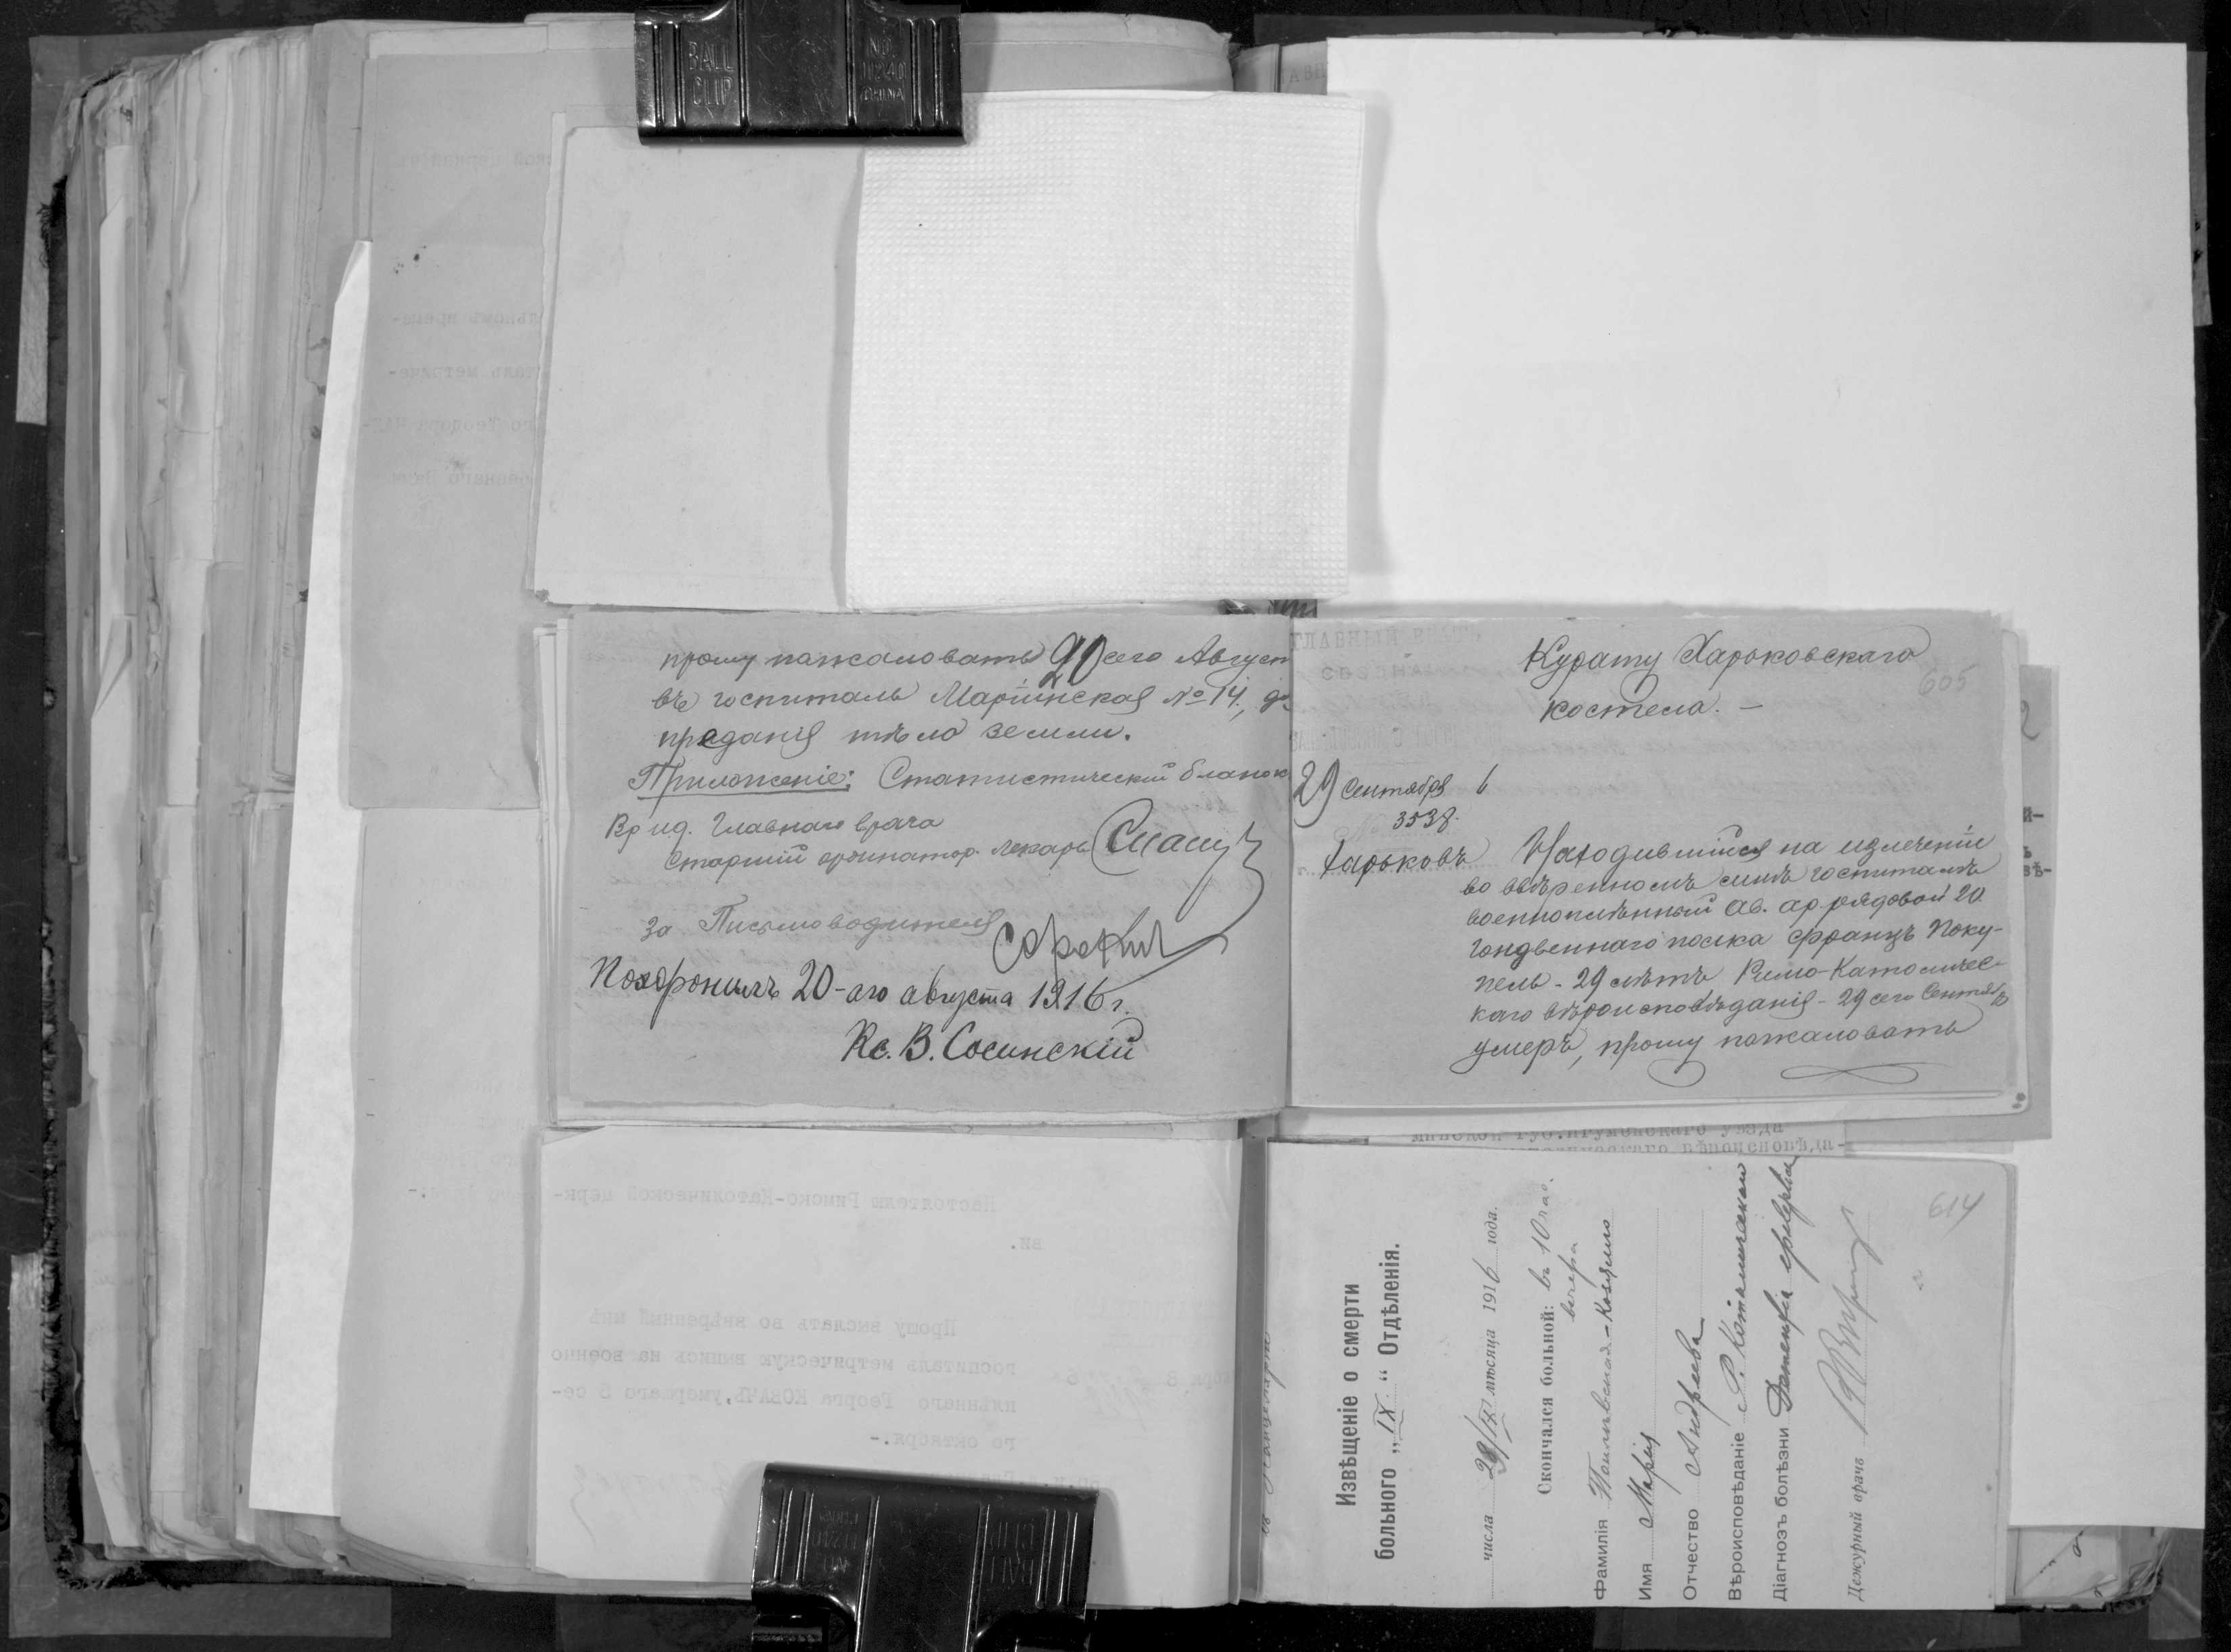 BALL
CLIP
прошу пожаловать 20 сего Август
въ госпиталь Маріинская № 14, д
преданія тѣла земли.
Приложеніе: Статистическій бланок
Вр ид. Главнаго врача
Старшій ординатор лекарь
За Письмоводителя
Похоронилъ 20-аго августа 1916 г.
Кс. В. Сосинскій
ГЛАВНЫЙ ВРАЧЪ
Курату Харьковскаго
605
костела. —
29 Сентября 6
3538.
Харьковъ Находившійся на излеченіи
во ввѣренномъ мнѣ госпиталѣ
военноплѣнный ав. ар рядовой 20
гондвеннаго полка Францъ Поку-
пель - 29 лѣтъ Римо-Католичес-
каго вѣроисповѣданія - 29 сего Сентяб
умеръ, прошу пожаловать
минской губ. игуменскаго уѣзда
вѣроисповѣда-
614
Извѣщеніе о смерти
больного „IX“ Отдѣленія.
числа 29/IX мѣсяца 1916 года.
Скончался больной: въ 10 час.
вечера
Фамилія
Имя Марія
Отчество Андреева
Вѣроисповѣданіе Р. Католическаго
Діагнозъ болѣзни Dementia epileptica
Дежурный врачъ
Настоятелю Римско-Католической церк-
ви.
Прошу выслать во ввѣренный мнѣ
госпиталь метрическую выпись на военно
плѣннаго Георга КОВАЧЪ, умершаго 8 се-
го октября.-